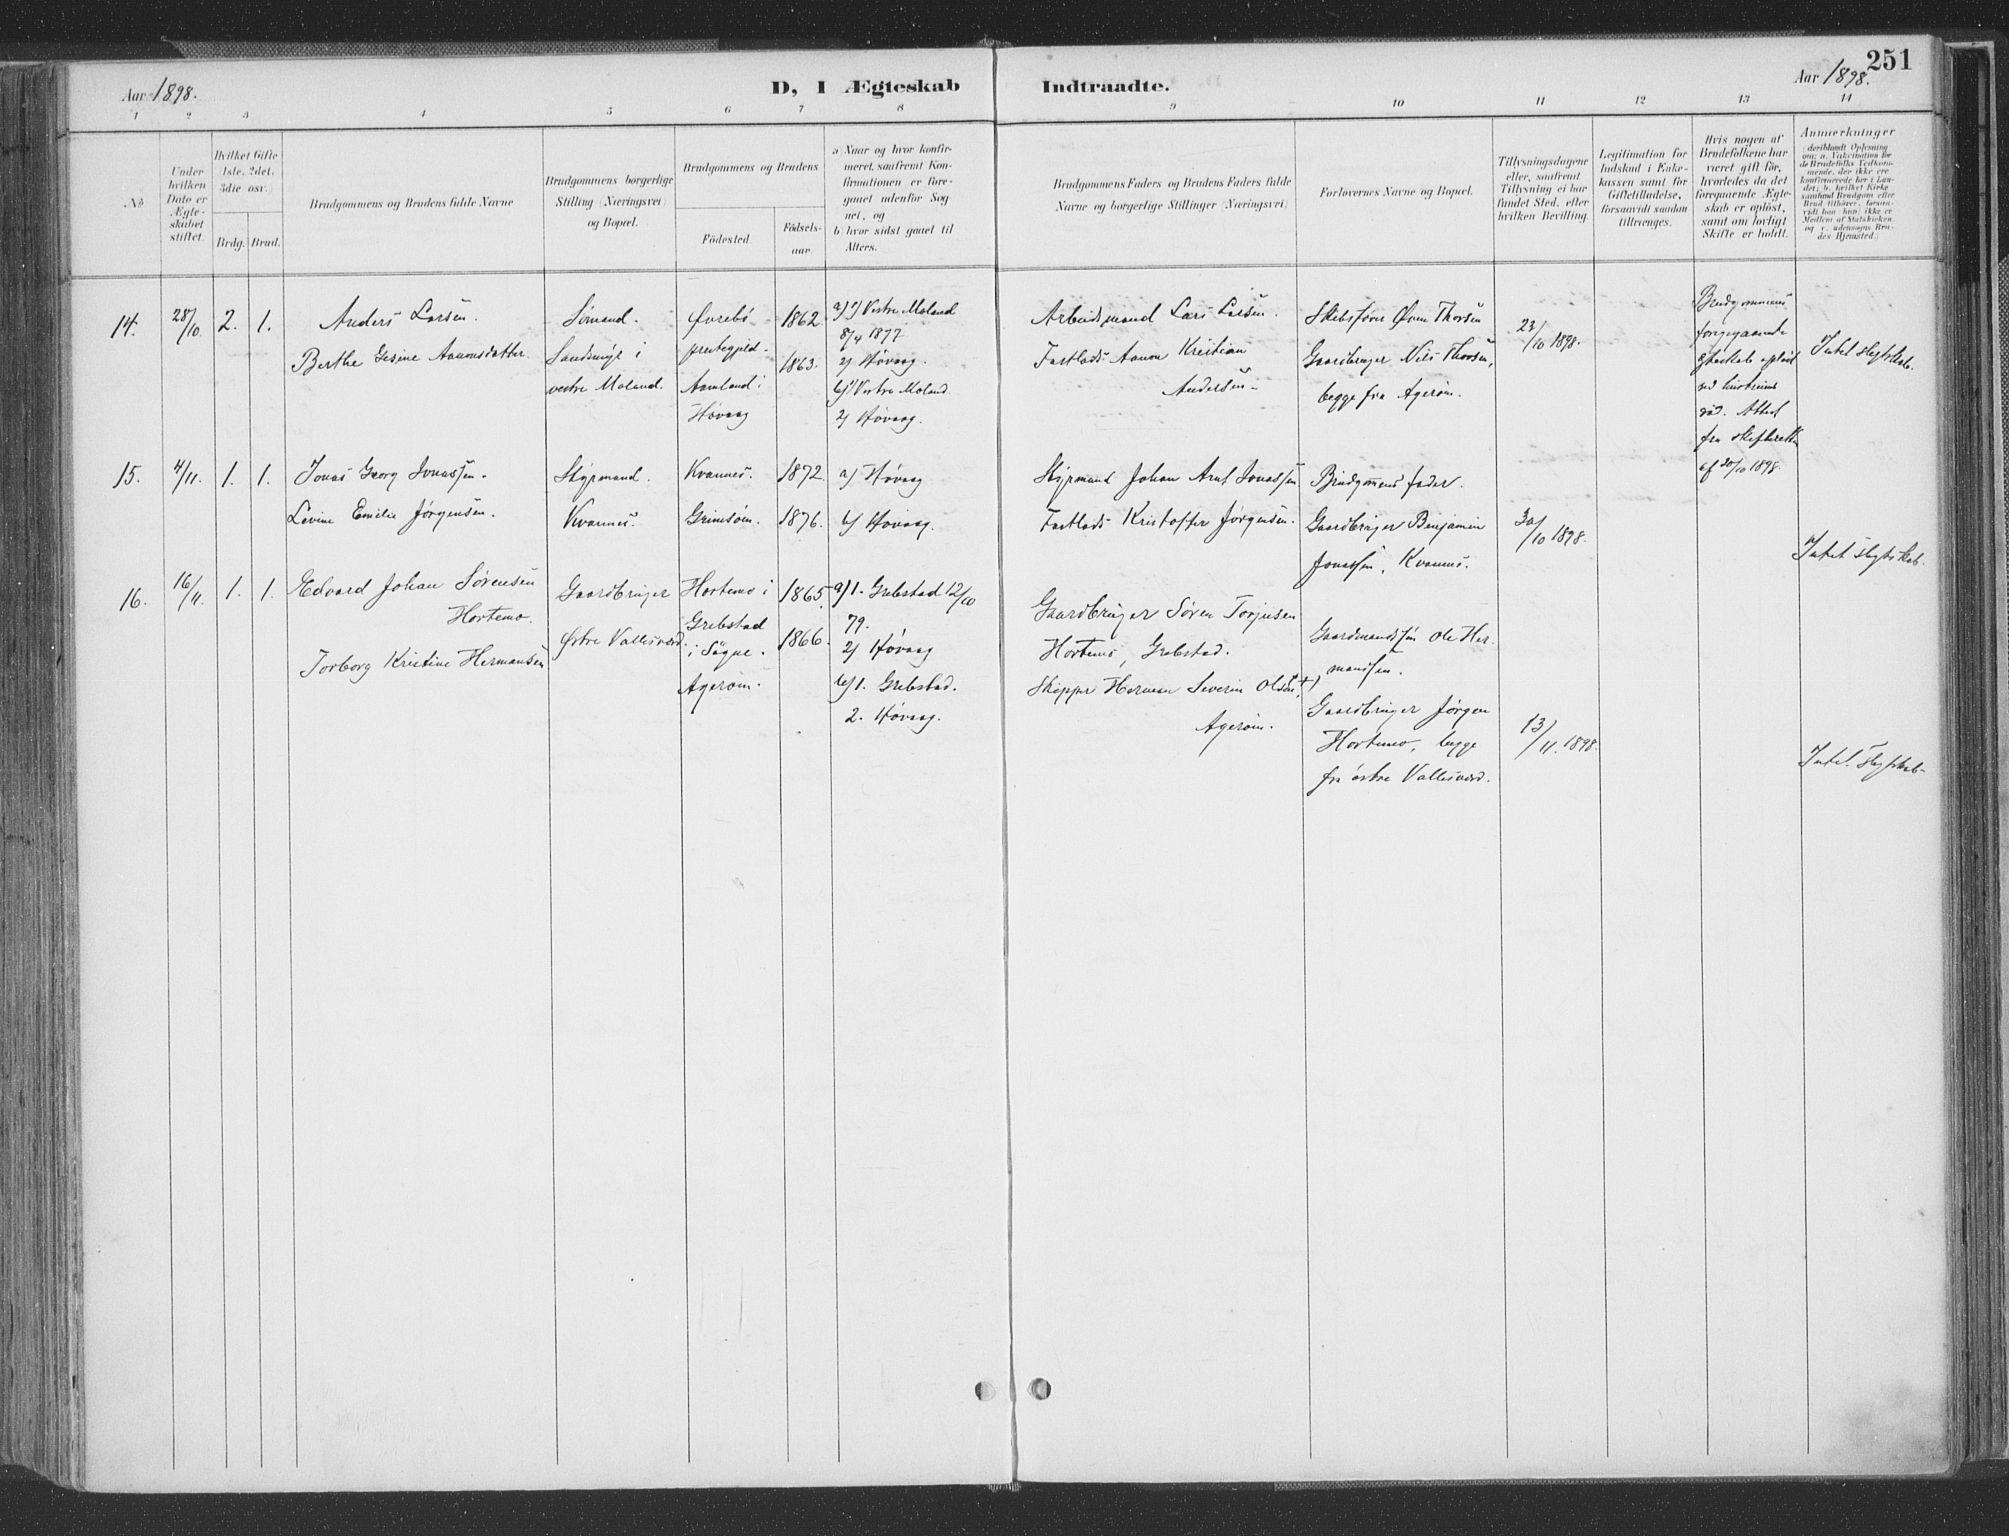 251
Aar 1898.
D, I Ægteskab
Indtraadte.
Aar 1898.
1 2 3 4 5 6 7 8 9 10 11 12 13 14
No
Under
hvilken
Dato er
Ægte-
skabet
stiftet.
Hvilket Gifte
1ste, 2det,
3die osv.)
Brdg. Brud.
Brudgommens og Brudens fulde Navne
Brudgommens borgerlige
Stilling (Næringsvei)
og Bopæl.
Brudgommens og Brudens
Fødested.
Fødsels-
aar.
a) Naar og hvor konfir-
meret, saafremt Kon-
firmationen er fore-
gaaet udenfor Sog-
net, og
b) hvor sidst gaaet til
Alters.
Brudgommens Faders og Brudens Faders fulde
Navne og borgerlige Stillinger (Næringsvei)
Forlovernes Navne og Bopæl.
Tillysningsdagene
eller, saafremt
Tillysning ei har
fundet Sted, efter
hvilken Bevilling.
Legitimation for
Indskud i Enke-
kassen samt for
Giftetilladelse,
forsaavidt saadan
tiltrænges.
Hvis nogen af
Brudefolkene har
været gift før,
hvorledes da det
foregaaende Ægte-
skab er opløst,
samt om lovligt
Skifte er holdt.
Anmerkninger
(deriblandt Oplysning
om: a. Vakcination for
de Brudefolks Vedkom-
mende, der ikke ere
konfirmerede her i Lan-
det; b. hvilket Kirke
samfund Brudgom eller
Brud tilhører, forsaa-
vidt han (hun) ikke er
Medlem af Statskirken,
og c. udensogns Bru-
des Hjemsted.)
14. 28/10 2. 1.
Anders Larsen.
Berthe Gesine Aanonsdatter
Sømand.
Sandsmyr i
vestre Moland.
Øvrebø
prestegjeld.
Aamland i
Høvaag
1862.
1863.
a) 1) Vestre Moland
8/4 1877
2) Høvaag.
b) 1) Vestre Moland
2) Høvaag.
Arbeidsmand Lars Larsen.
Fastlads Aanon Kristian
Andersen.
Skibsfører Øvon Thorsen
Gaardbruger Nils Thorsen,
begge fra Agerøen.
23/10 1898.
Brudgommens
foregaaende
Ægteskab opløst
ved hustruens
død. Attest
fra skifteretten
af 20/10 1898.
Intet slegtskab.
15. 4/11. 1. 1.
Jonas Georg Jonassen.
Levine Emilie Jørgensen.
Styrmand.
Kvannes.
Kvannes.
Grimsøen.
1872.
1876.
a) Høvaag
b) Høvaag.
Styrmand Johan Arnt Jonassen
Fastlads Kristoffer Jørgensen.
Brudgommens fader.
Gaardbruger Benjamin
Jonassen, Kvannes.
30/10 1898.
Intet slegtskab.
16. 16/11. 1. 1.
Edvard Johan Sørensen
Hortemo.
Torborg Kristine Hermansen
Gaardbruger
Østre Vallesværd.
Hortemo i
Grebstad
i Søgne.
Agerøen.
1865.
1866.
a) 1. Grebstad 12/10
79.
2) Høvaag
b) 1. Grebstad.
2. Høvaag.
Gaardbruger Søren Torjusen
Hortemo, Grebstad.
Skipper Herman Severin Olsen +)
Agerøen.
Gaardmandssøn Ole Her-
manssen.
Gaardbruger Jørgen
Hortemo, begge
fra østre Vallesværd.
13/11. 1898.
Intet slegtskab.